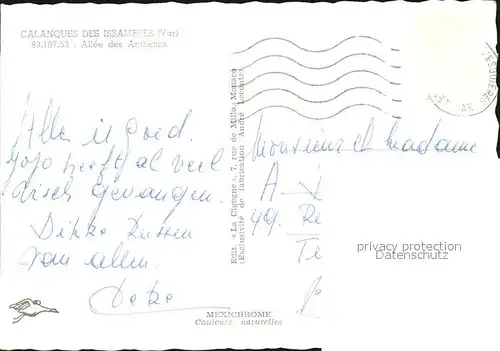 CALANQUES DES ISSAMBRES (Var)
83.107.53 - Allée des Anthemis
Alles is goed.
Jojo heeft al veel
visch gevangen.
Dikke Kussen
van allen.
Edit. « La Cigogne », 7, rue de Millo, Monaco
(Exclusivité de fabrication André Leconte)
MEXICHROME
Couleurs naturelles
Monsieur et Madame
A.
49. Re
Te
privacy protection
DATENSCHUTZ